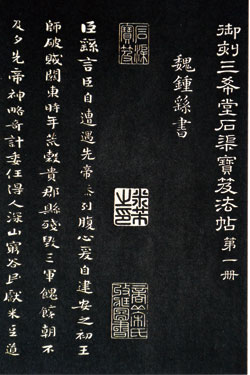 御刻三希堂石渠寶笈法帖第一冊
魏鍾繇書
石渠寶笈
臣繇言臣自遭遇先帝忝列腹心爰自建安之初王
師破賊關東時年荒穀貴郡縣殘毀三軍餽饟朝不
及夕先帝神略奇計委任得人深山窮谷民獻米豆道